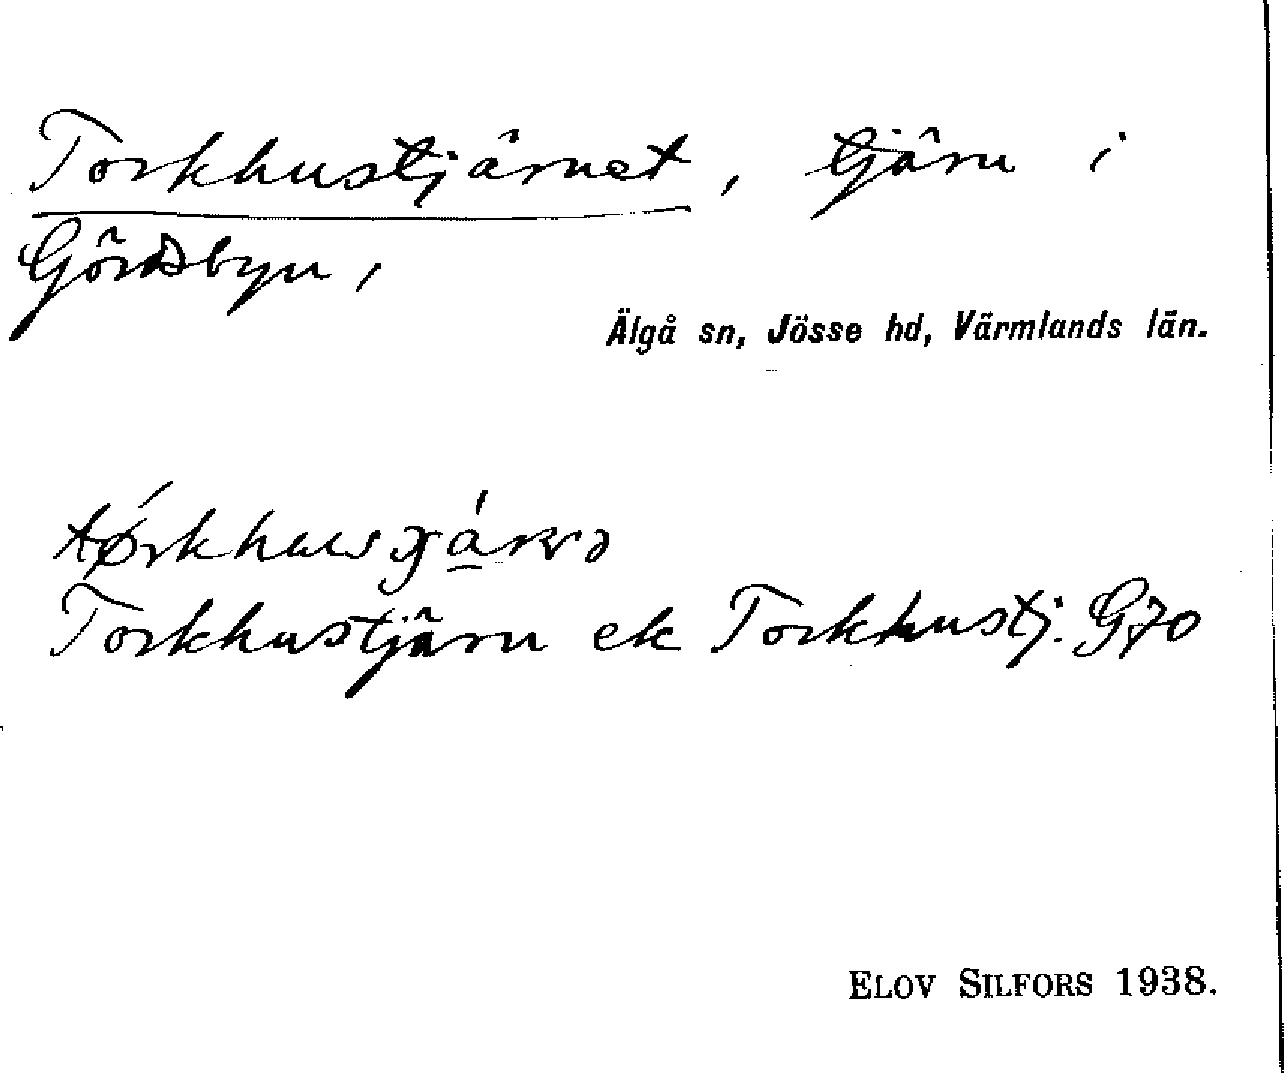 Torkhustjärnet, tjärn i
Gördsbyn,
Älgå sn, Jösse hd, Värmlands län.
Torkhustjärn ek Torkhustj. Gjo
ELOV SILFORS 1938.